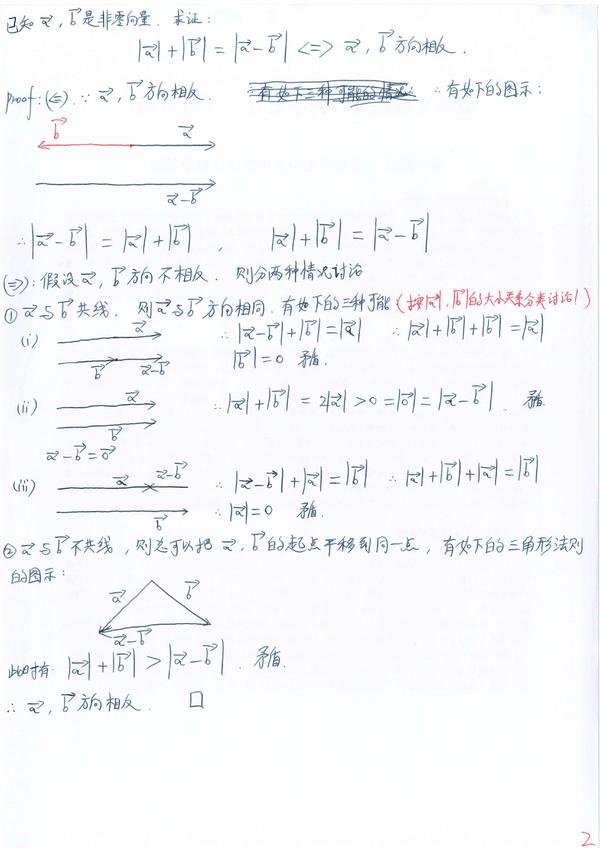 已知 a⃗, b⃗ 是非零向量. 求证:
|a⃗| + |b⃗| = |a⃗-b⃗| <=> a⃗, b⃗ 方向相反.
proof: (<=) ∵ a⃗, b⃗ 方向相反. ∴有如下三种可能的情况 ∴有如下的图示:
b⃗ a⃗
a⃗-b⃗
∴ |a⃗-b⃗| = |a⃗| + |b⃗| , |a⃗| + |b⃗| = |a⃗-b⃗|
(=>): 假设 a⃗, b⃗ 方向不相反. 则分两种情况讨论
① a⃗与b⃗共线, 则a⃗与b⃗方向相同. 有如下的三种可能 (按|a⃗|, |b⃗|的大小关系分类讨论!)
(i) a⃗ ∴ |a⃗-b⃗| + |b⃗| = |a⃗| ∴ |a⃗| + |b⃗| + |b⃗| = |a⃗|
b⃗ a⃗-b⃗ |b⃗| = 0 矛盾.
(ii) a⃗ ∴ |a⃗| + |b⃗| = 2|a⃗| > 0 = |0⃗| = |a⃗-b⃗| . 矛盾.
b⃗
a⃗-b⃗ = 0⃗
(iii) a⃗ a⃗-b⃗ ∴ |a⃗-b⃗| + |a⃗| = |b⃗| ∴ |a⃗| + |b⃗| + |a⃗| = |b⃗|
b⃗ ∴ |a⃗| = 0 矛盾.
② a⃗与b⃗不共线, 则总可以把 a⃗, b⃗ 的起点平移到同一点, 有如下的三角形法则
的图示:
a⃗ b⃗
a⃗-b⃗
此时有 |a⃗| + |b⃗| > |a⃗-b⃗| . 矛盾.
∴ a⃗, b⃗ 方向相反. □
2